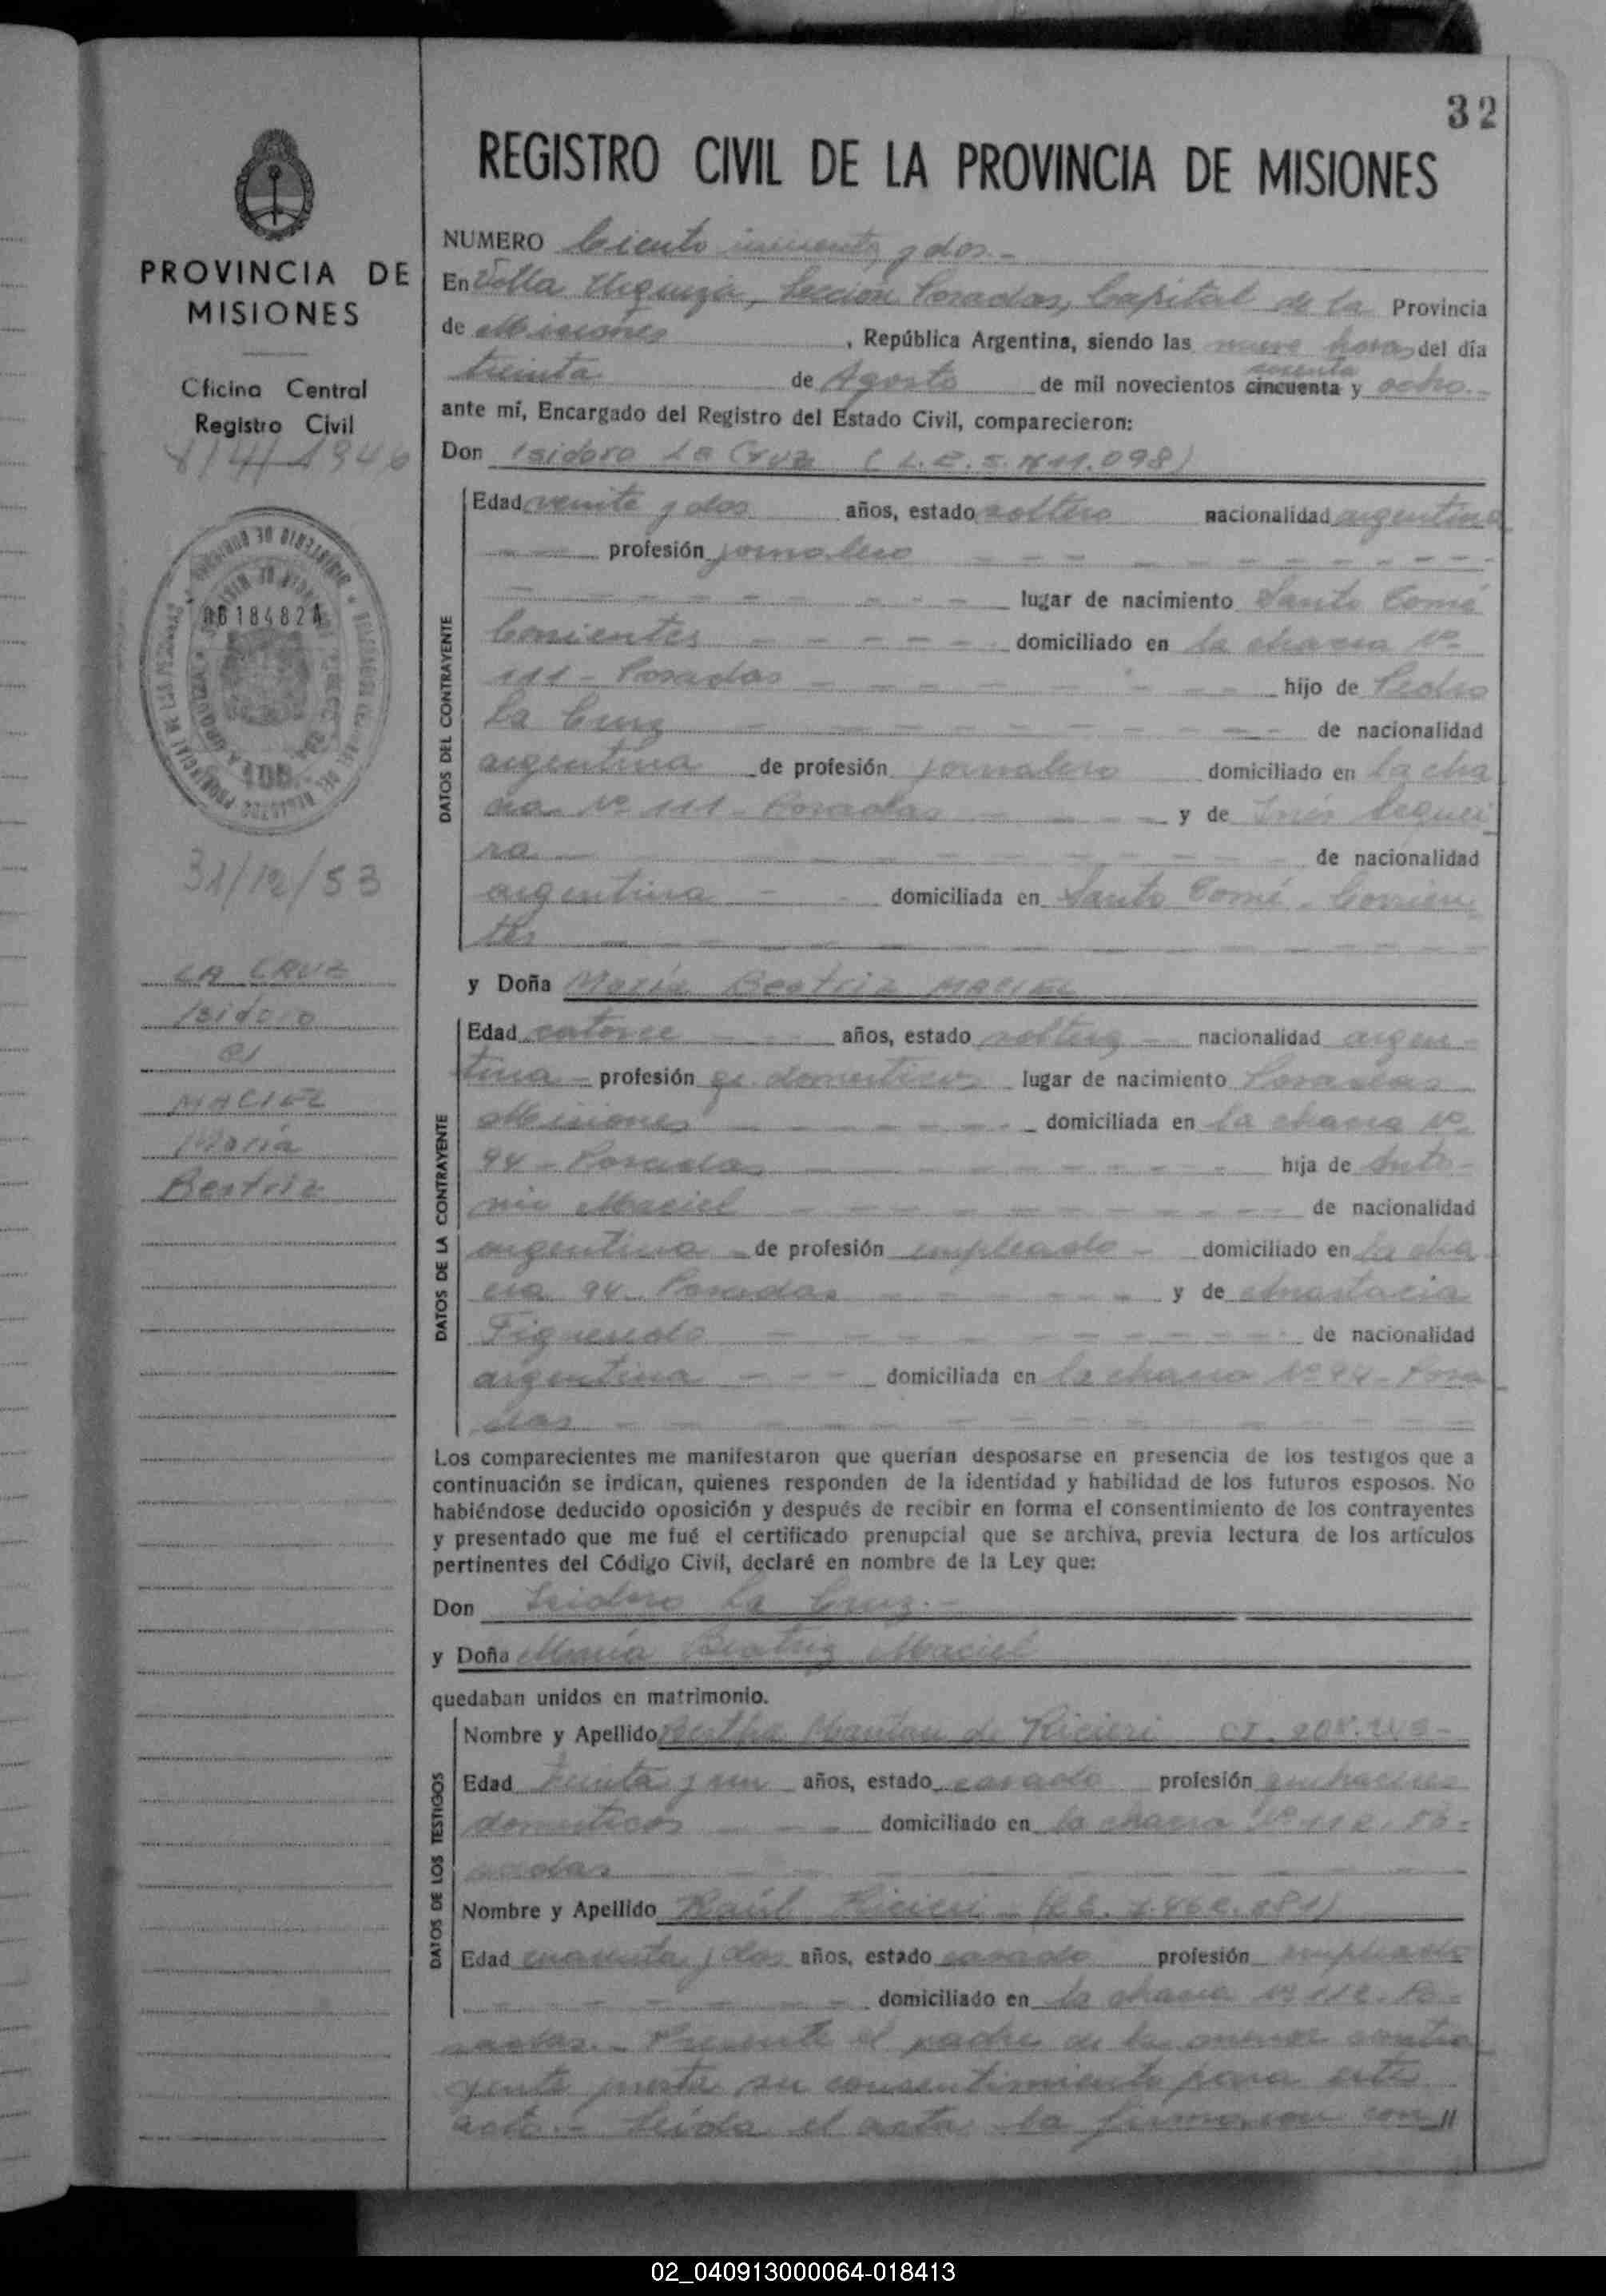 32
REGISTRO CIVIL DE LA PROVINCIA DE MISIONES
PROVINCIA DE
MISIONES
Oficina Central
Registro Civil
8/4/1946
06184824
31/12/53
LA CRUZ
Isidoro
c/
MACIEL
María
Beatriz
NUMERO Ciento cincuenta y dos.-
En Villa Urquiza, Sección Posadas, Capital de la Provincia
de Misiones, República Argentina, siendo las nueve horas del día
sesenta
treinta de Agosto de mil novecientos cincuenta y ocho.-
ante mí, Encargado del Registro del Estado Civil, comparecieron:
Don Isidoro La Cruz (L.E. 098)
Edad veinte y dos años, estado soltero nacionalidad argentina
profesión jornalero
lugar de nacimiento Santo Tomé
Corrientes domiciliado en la chacra Nº
111 - Posadas hijo de Pedro
La Cruz de nacionalidad
argentina de profesión jornalero domiciliado en la cha
cra Nº 111 - Posadas y de Inés Sequei
ra de nacionalidad
argentina domiciliada en Santo Tomé - Corrien
tes
y Doña María Beatriz MACIEL
Edad catorce años, estado soltera nacionalidad argen-
tina - profesión q. domesticos lugar de nacimiento Posadas
Misiones domiciliada en la chacra Nº
94 - Posadas hija de Anto-
nio Maciel de nacionalidad
argentina de profesión empleado domiciliado en la cha
cra 94 - Posadas y de Anastacia
Figueredo de nacionalidad
argentina domiciliada en la chacra Nº 94 - Posa
das
Los comparecientes me manifestaron que querían desposarse en presencia de los testigos que a
continuación se indican, quienes responden de la identidad y habilidad de los futuros esposos. No
habiéndose deducido oposición y después de recibir en forma el consentimiento de los contrayentes
y presentado que me fué el certificado prenupcial que se archiva, previa lectura de los artículos
pertinentes del Código Civil, declaré en nombre de la Ley que:
Don Isidoro La Cruz.-
y Doña María Beatriz Maciel
quedaban unidos en matrimonio.
Nombre y Apellido de Ricieri
Edad treinta y un años, estado casado profesión quehaceres
domesticos domiciliado en la chacra Nº 112. Po-
sadas
Nombre y Apellido Raúl Ricieri
Edad cuarenta y dos años, estado casado profesión empleado
domiciliado en la chacra Nº 112. Po-
sadas.- Presente el padre de la menor contra
yente presta su consentimiento para este
acto.- Leída el acta la firmaron con //
DATOS DEL CONTRAYENTE
DATOS DE LA CONTRAYENTE
DATOS DE LOS TESTIGOS
02_040913000064-018413